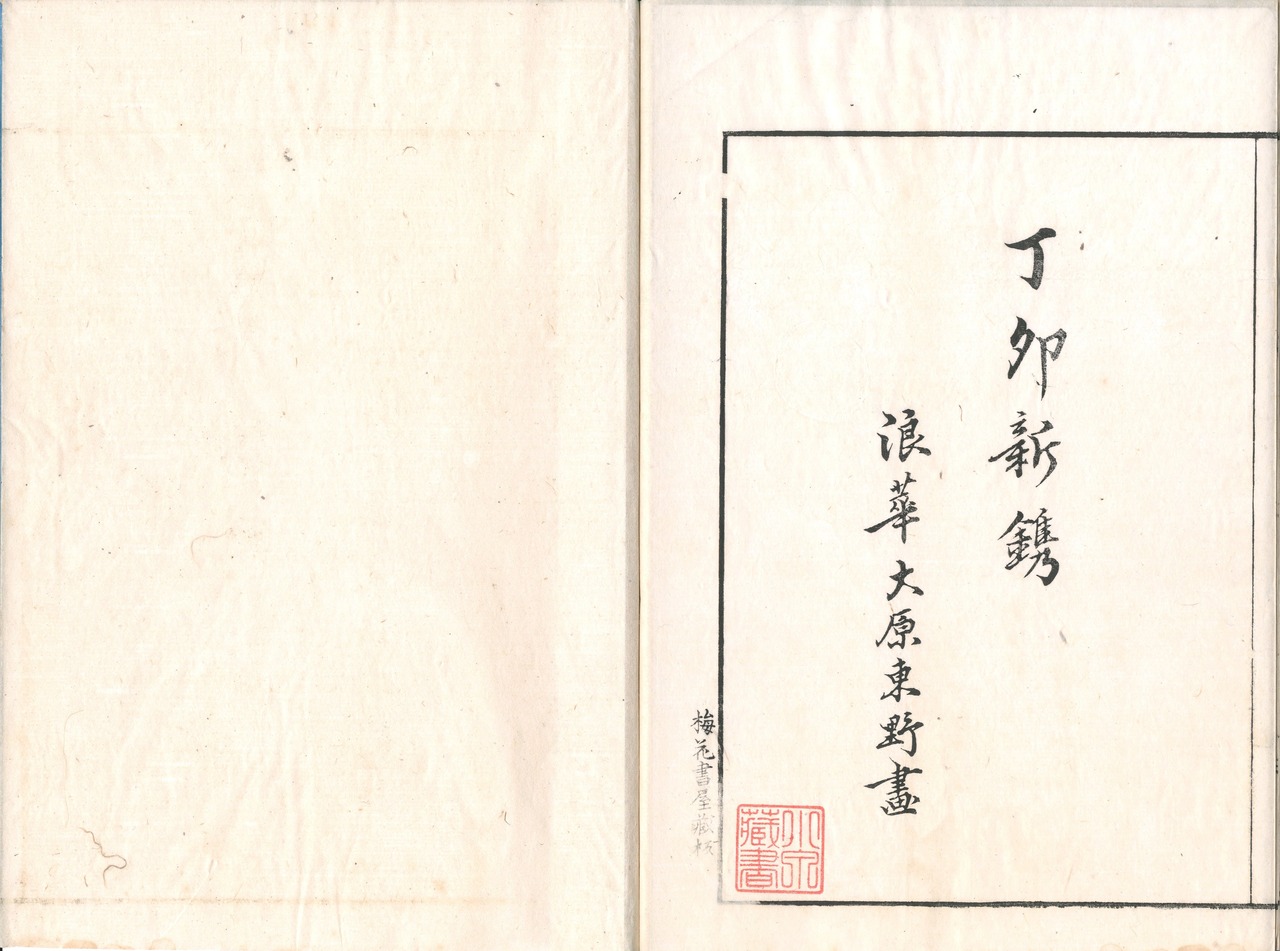 丁卯新鐫
浪華大原東野畫
梅花書屋藏板
小田
藏書